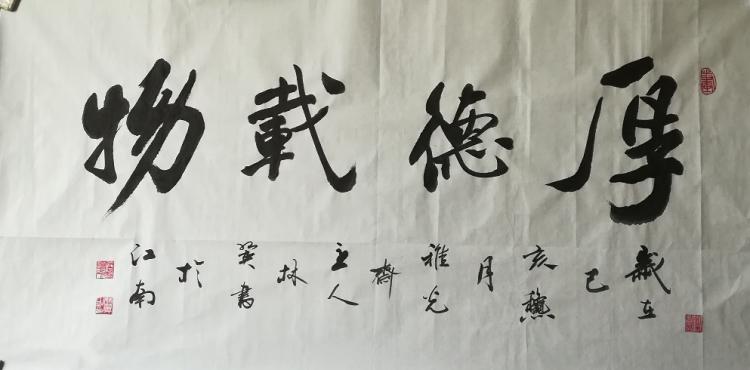 厚德載物
歲在己亥龝月雅光齋主人林癸書於江南